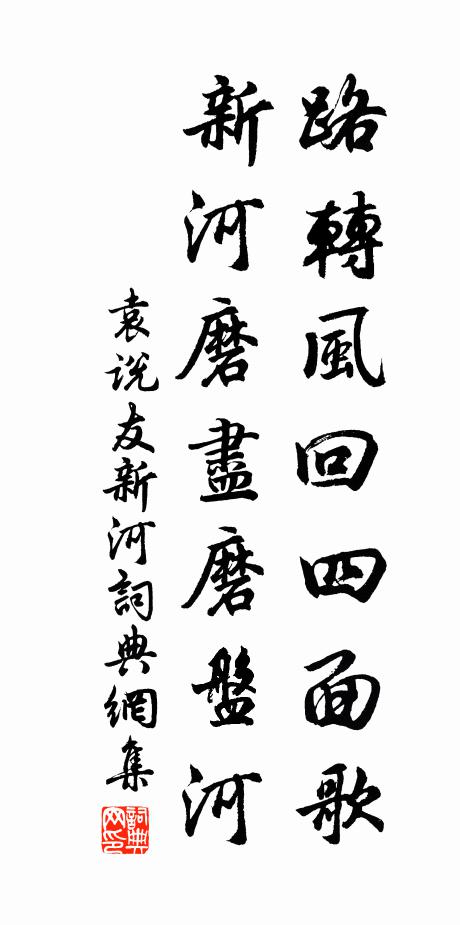 路轉風回四面歌
新河磨盡磨盤河
袁说友新河詞典網集
詞典网印